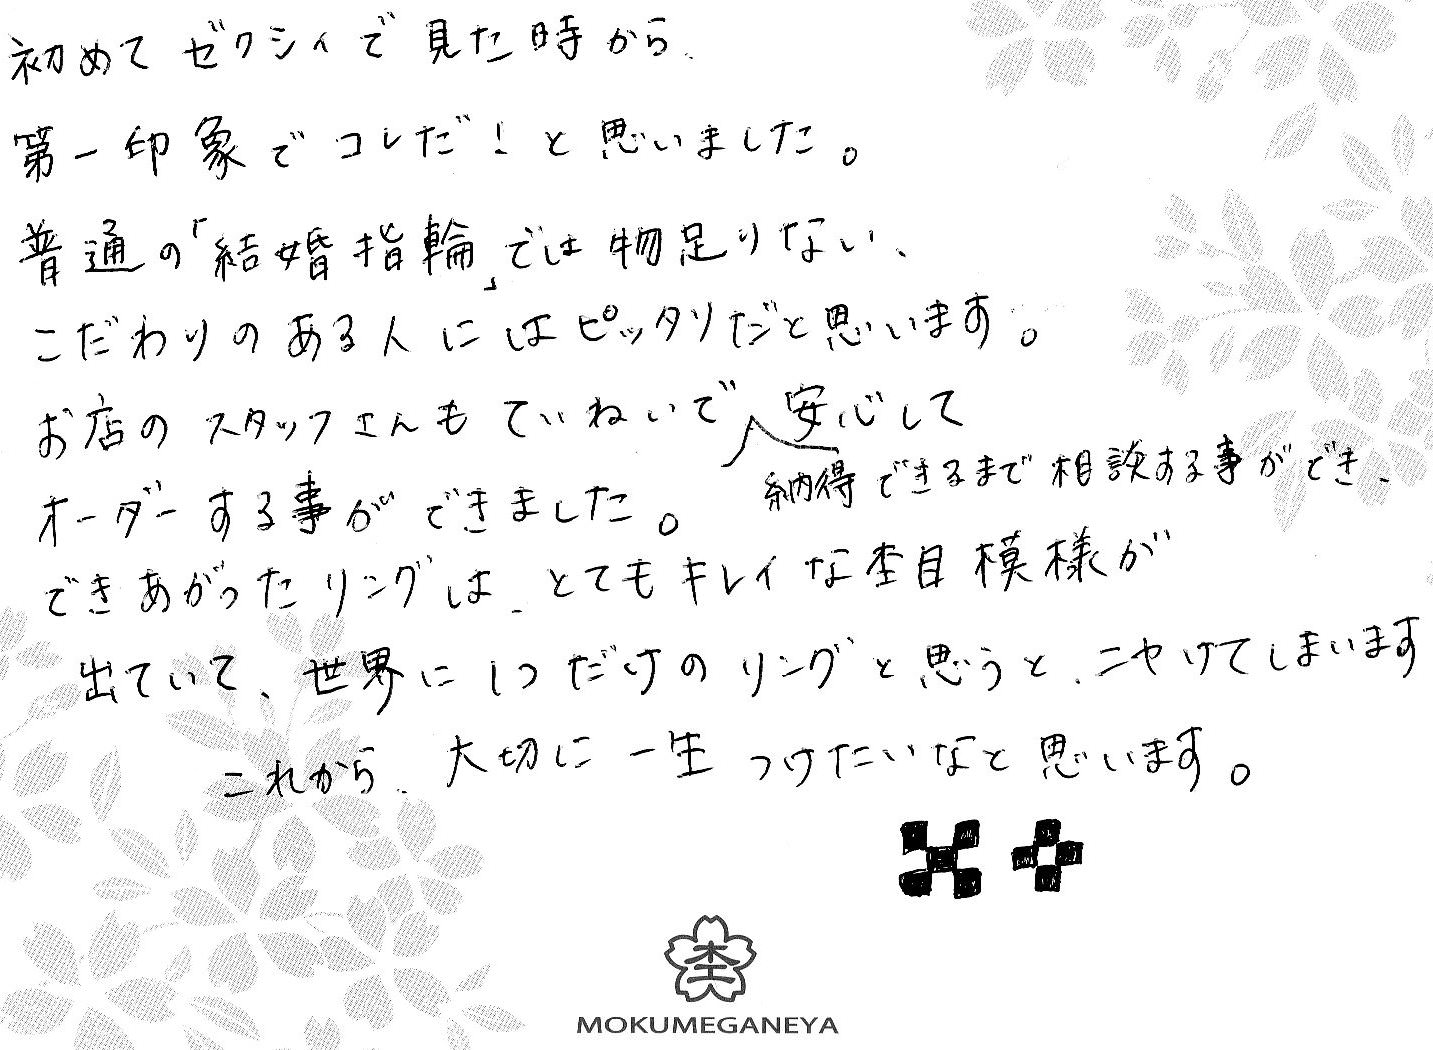 初めて ゼクシィで 見た時から、
第一印象で コレだ！と 思いました。
普通の「結婚指輪」では 物足りない、
こだわりの ある人 には ピッタリだと 思います。
お店の スタッフさんも ていねいで 安心して
納得できるまで 相談する事ができ、
オーダーする事が できました。
できあがった リングは、とても キレイな 杢目模様が
出ていて、世界に 1つ だけの リングと 思うと、ニヤけてしまいます
これから、大切に 一生 つけたいなと 思います。
杢
MOKUMEGANEYA